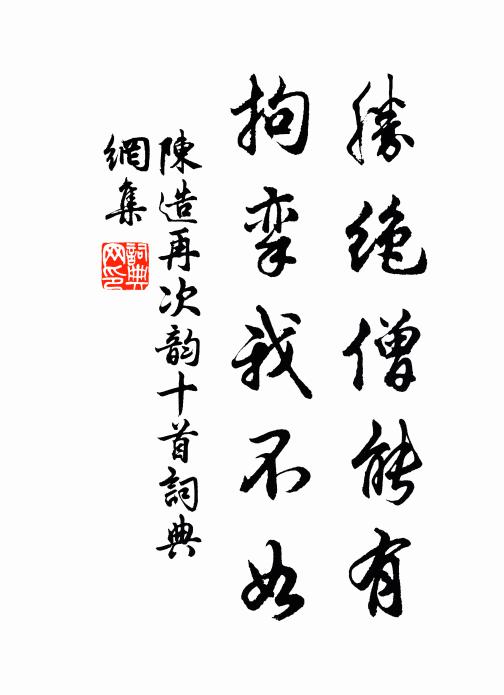 勝絶僧能有
拘挛我不如
陳造再次韵十首詞典
網集
詞典网印